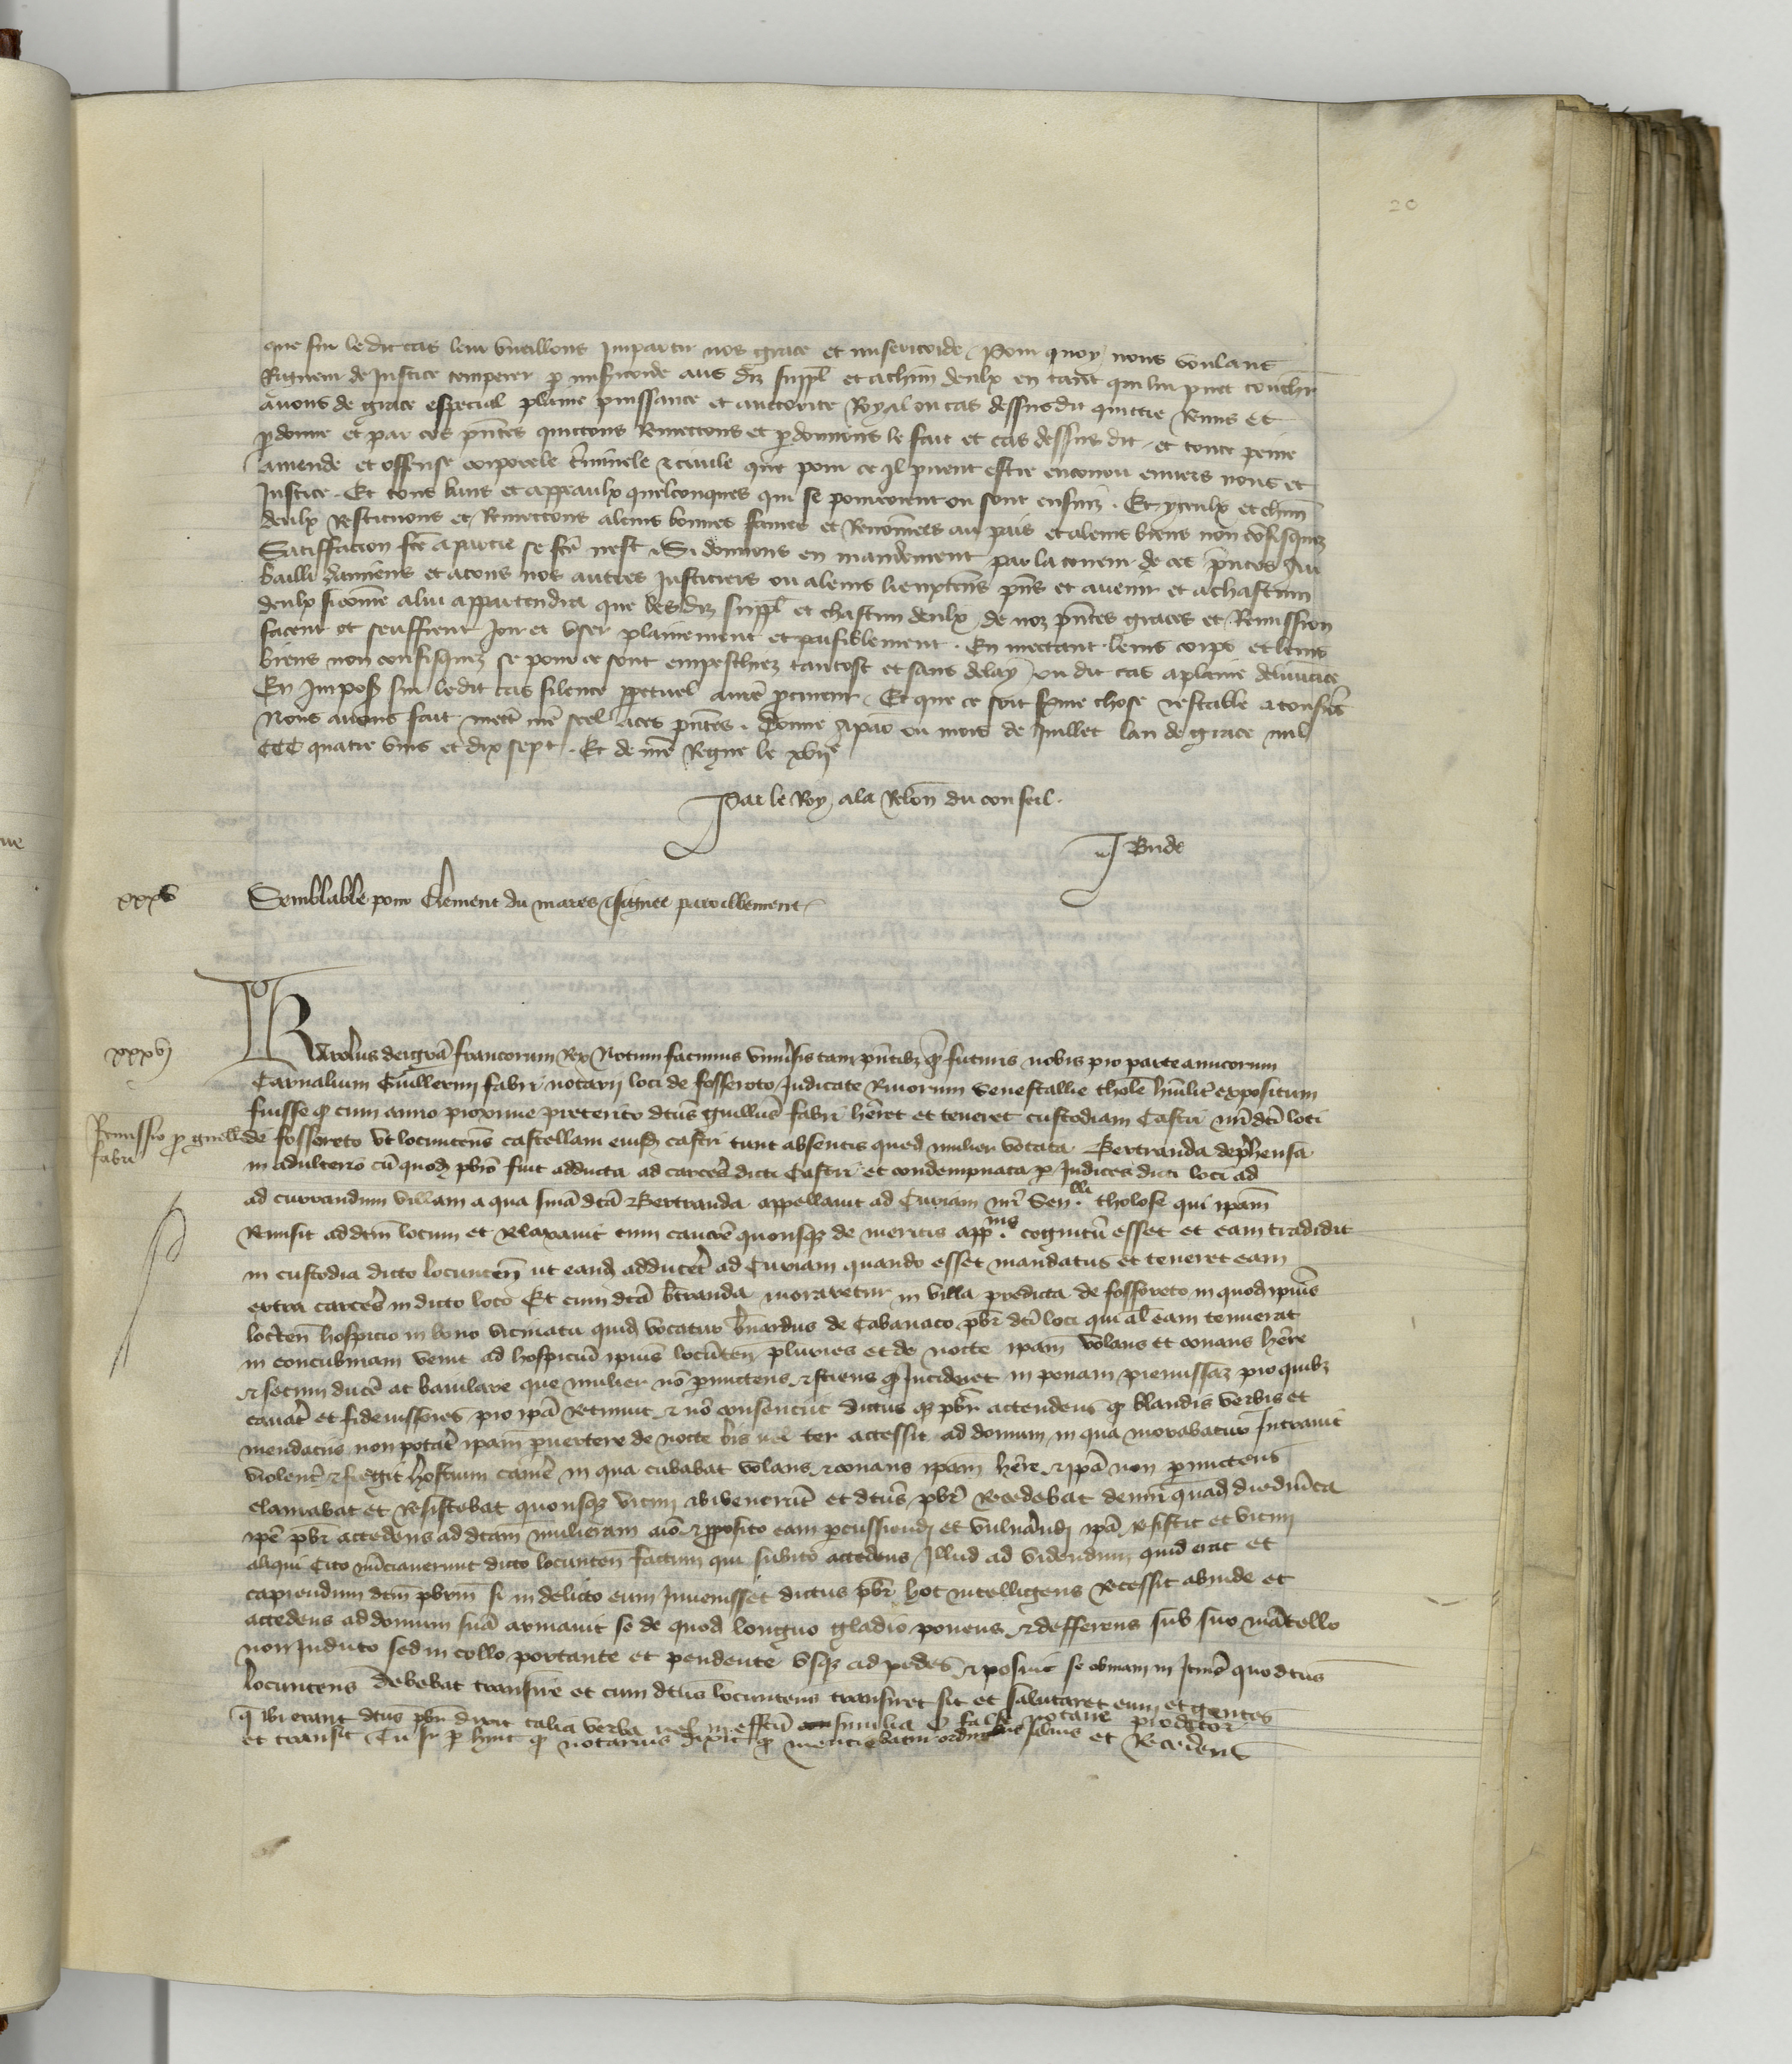 20
que sur ledit cas leur vueillons Impartir nos grace et misericorde / Pour quoy nous voulans
Rigueur de Justice temperer p misicorde aus diz suppl et achun deulx en tant quil lui puet touchr
avons de grace especial plaine puissance et auctorite Royal ou cas dessusdit quictie Remis et
pdonne et par ces pntes quictons Remettons et pdonnons le fait et cas dessus dit et toute peine
amende et offense corporele criminele et civile quilz pour ce Il puent estre encouru envers nous et
Justice. Et tous bans et appeaulx quelconques qui se pourroient ou sont ensuiz. Et yceulx et chun
deulx Restituons et Remettons a leurs bonnes fames et Renomees au pais et a leurs biens non confisquez
Satisfacion fte a partie se fte nest Si donnons en mandement par la teneur de ces pntes Au
bailli damiens et a tous nos autres Justiciers ou a leurs lieuxtens pns et avenir et a chascun
deulx sicomme a lui appartendra que les diz suppl et chascun deulx de noz pntes graces et Remission
facent et seuffrent Joir et user plainement et paisiblement. En mectant leurs corps et leurs
biens non confisquez se pour ce sont empeschiez tantost et sans delay ou dit cas a plaine delivrance
En Impos sur ledit cas silence ppetuel a nre pcureur. Et que ce soit ferme chose et estable a tousjrs
Nous avons fait mettre nre seel a ces pntes. Donne a paris ou mois de Juillet lan de grace mil
CCC quatre vins et dix sept. Et de nre Regne le xviie
Par le Roy a la Relon du conseil.
J Bude
xxxv Semblable pour Clement du mares / signee pareillement
xxxvj Karolus dei gra francorum Rex Notum facimus universis tam pntibz q futuris nobis pro parte amicorum
Carnalium Guillermi fabri notarij loci de fossereto Judicate Rivorum Senescallie thole humilit expositum
Remissio p guillo fabri
fuisse q cum anno proxime preterito dtus guillus fabri heret et teneret custodiam Castri nri dti loci
de fossereto ut locuntens castellani eiusd castri tunc absentis qued mulier vocata Bertranda dephensa
in adulterio cu quod pbro fuit adducta ad carceres dicti Castri et condempnata p Judices dicti loci ad
ad currandum villam a qua sma dta Bertranda appellavit ad Curiam nri Sen.lli tholose qui ipam
Remisit ad dtm locum et relaxavit cum caucoe quousqz de meritis app.nis cognitu esset et eam tradidit
in custodia dicto locunten ut eand adduceret ad Curiam quando esset mandatus et teneret eam
extra carceres in dicto loco Et cum dta btranda moraretur in villa predicta de fossereto in quod ipius
locten hospicio in bono vicinatu quid vocatur bnardus de Cabanaco pbr dti loci qui al eam tenuerat
in concubinam venit ad hospiciu ipius locuten pluries et de nocte ipam volens et conans here
et secum duce ac baiulare que mulier no pmictens et sciens q Incideret in penam premissaz pro quibz
cavat et fideiussores pro ipa Retinuit et no consenciit dictus qz pbr actendens q blandis verbis et
mendaciis non poterat ipam pvertere de nocte bis vel ter accessit ad domum in qua morabatur Intravit
violent et fregit hostium camere in qua cubabat volens et conans ipam here et ipa non pmictens
clamabat et Resistebat quousqz vicini ibi venerut et dtus pbr Recedebat demu quad die dnica
ipe pbr accedens ad dtam mulierem aio et pposito eam pcussiendi et vulnandi ipa resistit et vicini
aliqui Cito nuciaverunt dicto locunten factum qui subito accedens Illud ad videndum quid erat et
capiendum dtm pbrm si in delicto eum Invenisset dictus pbr hoc intelligens Recessit abinde et
accedens ad domum sua armavit se de quod longuo gladio ponens et defferens sub suo mantello
non Induto sed in collo portante et pendente usqz ad pedes et posuit se obviam in Itine quo dtus
locuntens debebat transire et cum dtus locuntens transiret sit et salutaret eum et gentes
q ibi erant dtus pbr dixit talia verba vel in effectu similia O false notarie proditor
et transit Tu sr p hinc q notarius dixit q mentiebatur ordinibus salvis et Recedens